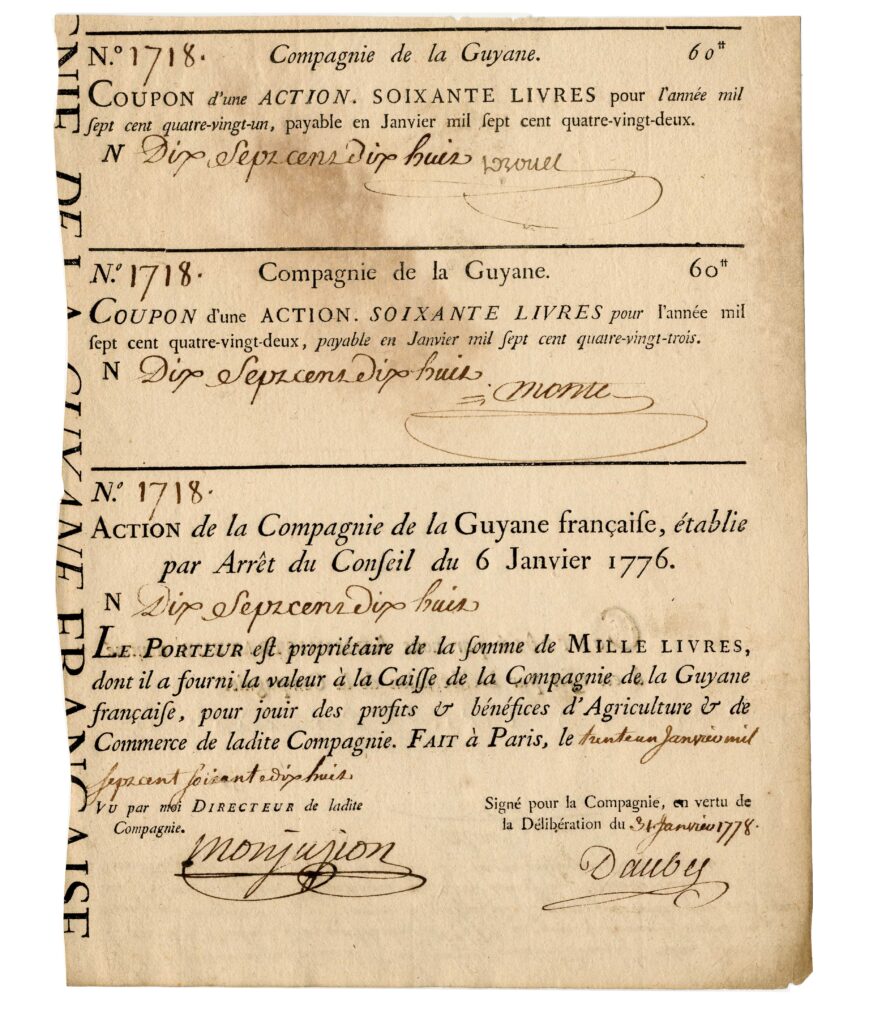 N.º 1718. Compagnie de la Guyane. 60tt
COUPON d'une ACTION. SOIXANTE LIVRES pour l'année mil
ſept cent quatre-vingt-un, payable en Janvier mil ſept cent quatre-vingt-deux.
N Dix Sept cent dix huit
N.º 1718. Compagnie de la Guyane. 60tt
COUPON d'une ACTION. SOIXANTE LIVRES pour l'année mil
ſept cent quatre-vingt-deux, payable en Janvier mil ſept cent quatre-vingt-trois.
N Dix Sept cent dix huit
N.º 1718.
ACTION de la Compagnie de la Guyane françaiſe, établie
par Arrêt du Conſeil du 6 Janvier 1776.
N Dix Sept cent dix huit
LE PORTEUR eſt propriétaire de la ſomme de MILLE LIVRES,
dont il a fourni la valeur à la Caiſſe de la Compagnie de la Guyane
françaiſe, pour jouir des profits & bénéfices d'Agriculture & de
Commerce de ladite Compagnie. FAIT à Paris, le trente un Janvier mil
ſept cent soixante dix huit
VU par moi DIRECTEUR de ladite
Compagnie.
Signé pour la Compagnie, en vertu de
la Délibération du 31 Janvier 1778.
Dauby
GNIE DE LA GUYANE FRANÇAISE